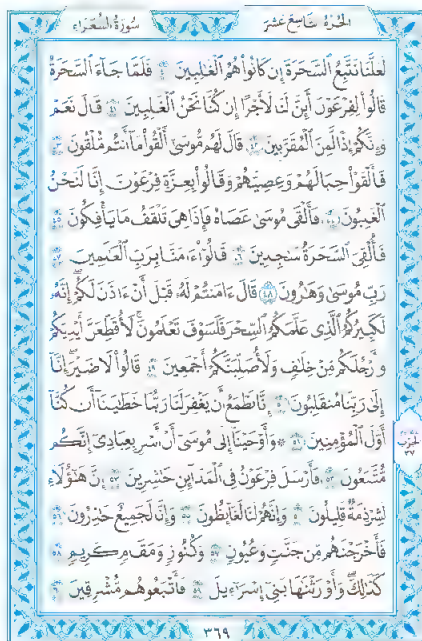 الجُزءُ التَّاسِعَ عَشَرَ
سُورَةُ الشُّعَرَاءِ
لَعَلَّنَا نَتَّبِعُ السَّحَرَةَ إِن كَانُوا هُمُ الْغَالِبِينَ ٤٠ فَلَمَّا جَاءَ السَّحَرَةُ
قَالُوا لِفِرْعَوْنَ أَئِنَّ لَنَا لَأَجْرًا إِن كُنَّا نَحْنُ الْغَالِبِينَ ٤١ قَالَ نَعَمْ
وَإِنَّكُمْ إِذًا لَّمِنَ الْمُقَرَّبِينَ ٤٢ قَالَ لَهُم مُّوسَىٰ أَلْقُوا مَا أَنتُم مُّلْقُونَ ٤٣
فَأَلْقَوْا حِبَالَهُمْ وَعِصِيَّهُمْ وَقَالُوا بِعِزَّةِ فِرْعَوْنَ إِنَّا لَنَحْنُ
الْغَالِبُونَ ٤٤ فَأَلْقَىٰ مُوسَىٰ عَصَاهُ فَإِذَا هِيَ تَلْقَفُ مَا يَأْفِكُونَ ٤٥
فَأُلْقِيَ السَّحَرَةُ سَاجِدِينَ ٤٦ قَالُوا ءَامَنَّا بِرَبِّ الْعَالَمِينَ ٤٧
رَبِّ مُوسَىٰ وَهَارُونَ ٤٨ قَالَ ءَامَنتُمْ لَهُ قَبْلَ أَنْ ءَاذَنَ لَكُمْ إِنَّهُ
لَكَبِيرُكُمُ الَّذِي عَلَّمَكُمُ السِّحْرَ فَلَسَوْفَ تَعْلَمُونَ لَأُقَطِّعَنَّ أَيْدِيَكُمْ
وَأَرْجُلَكُم مِّنْ خِلَافٍ وَلَأُصَلِّبَنَّكُمْ أَجْمَعِينَ ٤٩ قَالُوا لَا ضَيْرَ إِنَّا
إِلَىٰ رَبِّنَا مُنقَلِبُونَ ٥٠ إِنَّا نَطْمَعُ أَن يَغْفِرَ لَنَا رَبُّنَا خَطَايَانَا أَن كُنَّا
أَوَّلَ الْمُؤْمِنِينَ ٥١ ۞ وَأَوْحَيْنَا إِلَىٰ مُوسَىٰ أَنْ أَسْرِ بِعِبَادِي إِنَّكُم
مُّتَّبَعُونَ ٥٢ فَأَرْسَلَ فِرْعَوْنُ فِي الْمَدَائِنِ حَاشِرِينَ ٥٣ إِنَّ هَٰؤُلَاءِ
لَشِرْذِمَةٌ قَلِيلُونَ ٥٤ وَإِنَّهُمْ لَنَا لَغَائِظُونَ ٥٥ وَإِنَّا لَجَمِيعٌ حَاذِرُونَ ٥٦
فَأَخْرَجْنَاهُم مِّن جَنَّاتٍ وَعُيُونٍ ٥٧ وَكُنُوزٍ وَمَقَامٍ كَرِيمٍ ٥٨
كَذَٰلِكَ وَأَوْرَثْنَاهَا بَنِي إِسْرَائِيلَ ٥٩ فَأَتْبَعُوهُم مُّشْرِقِينَ ٦٠
الحزب
٣٧
٣٦٩